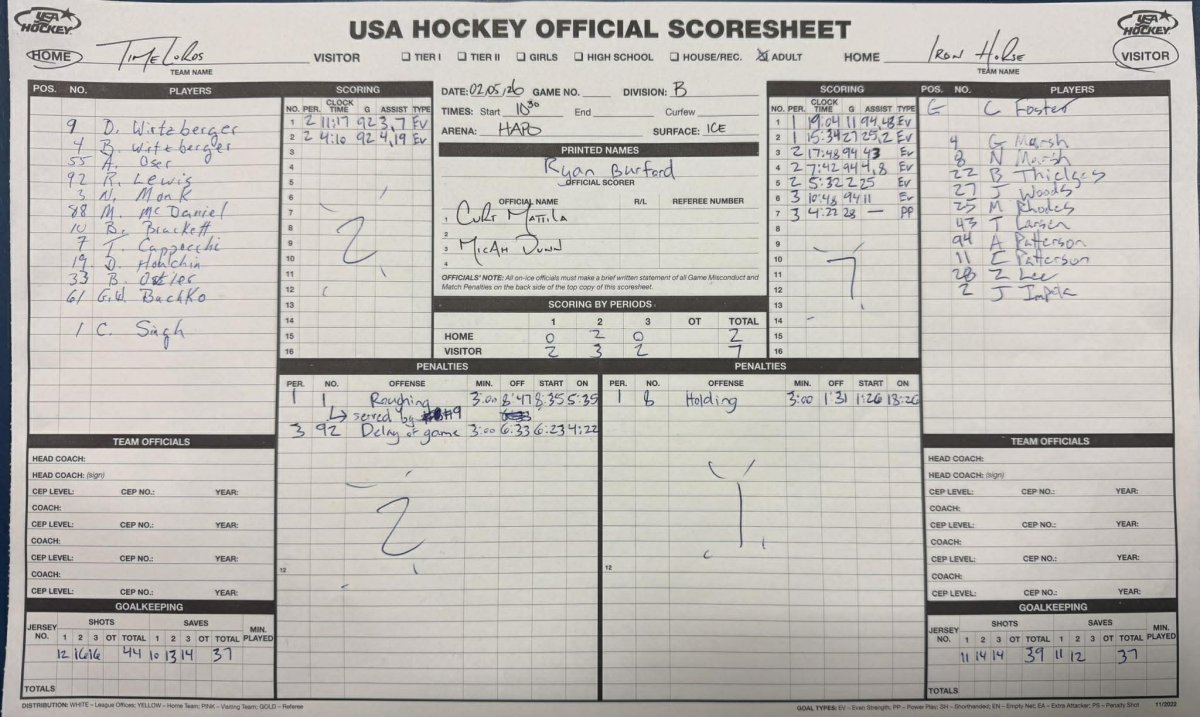 USA HOCKEY
USA HOCKEY OFFICIAL SCORESHEET
USA HOCKEY
HOME Time Lords VISITOR TIER I TIER II GIRLS HIGH SCHOOL HOUSE/REC. ADULT HOME Iron Horse VISITOR
TEAM NAME
TEAM NAME
POS. NO. PLAYERS
9 D. Wirtzberger
4 B. Wirtzberger
55 A. Oser
92 R. Lewis
3 N. Monk
88 M. McDaniel
10 B. Brackett
7 T. Cappocchi
19 D. Houchin
33 B. Ostler
61 G.W. Buchko
1 C. Singh
SCORING
NO. PER. CLOCK TIME G ASSIST TYPE
1 2 11:17 92 3,7 Ev
2 2 4:10 92 4,19 Ev
3
4
5
6
7
8
9
10
11
12
13
14
15
16
2
DATE: 02,05,26 GAME NO. DIVISION: B
TIMES: Start 10:30 End Curfew
ARENA: HAPO SURFACE: ICE
PRINTED NAMES
Ryan Burford
OFFICIAL SCORER
OFFICIAL NAME R/L REFEREE NUMBER
1 Curt Mattila
2
3 Micah Dunn
4
OFFICIALS' NOTE: All on-ice officials must make a brief written statement of all Game Misconduct and
Match Penalties on the back side of the top copy of this scoresheet.
SCORING BY PERIODS
1 2 3 OT TOTAL
HOME 0 2 0 2
VISITOR 2 3 2 7
SCORING
NO. PER. CLOCK TIME G ASSIST TYPE
1 1 19:04 11 94,48 Ev
2 1 15:34 27 25,2 Ev
3 2 17:48 94 43 Ev
4 2 7:42 94 4,8 Ev
5 2 5:32 2 25 Ev
6 3 10:48 94 11 Ev
7 3 4:22 28 — PP
8
9
10
11
12
13
14
15
16
7
POS. NO. PLAYERS
G C Foster
4 G Marsh
8 N Marsh
22 B Thielges
27 J Woods
25 M Rhodes
43 T Larsen
94 A Patterson
11 C Patterson
28 Z Lee
2 J Impola
PENALTIES
PER. NO. OFFENSE MIN. OFF START ON
1 1 Roughing 3:00 8:47 8:35 5:35
served by #9
3 92 Delay of game 3:00 6:33 6:23 4:22
2
12
PENALTIES
PER. NO. OFFENSE MIN. OFF START ON
1 8 Holding 3:00 1:31 1:26 18:26
1
12
TEAM OFFICIALS
HEAD COACH:
HEAD COACH: (sign)
CEP LEVEL: CEP NO.: YEAR:
COACH:
CEP LEVEL: CEP NO.: YEAR:
COACH:
CEP LEVEL: CEP NO.: YEAR:
COACH:
CEP LEVEL: CEP NO.: YEAR:
GOALKEEPING
JERSEY NO. SHOTS SAVES MIN. PLAYED
1 2 3 OT TOTAL 1 2 3 OT TOTAL
12 16 16 44 10 13 14 37
TOTALS
TEAM OFFICIALS
HEAD COACH:
HEAD COACH: (sign)
CEP LEVEL: CEP NO.: YEAR:
COACH:
CEP LEVEL: CEP NO.: YEAR:
COACH:
CEP LEVEL: CEP NO.: YEAR:
COACH:
CEP LEVEL: CEP NO.: YEAR:
GOALKEEPING
JERSEY NO. SHOTS SAVES MIN. PLAYED
1 2 3 OT TOTAL 1 2 3 OT TOTAL
11 14 14 39 11 12 37
TOTALS
DISTRIBUTION: WHITE – League Offices; YELLOW – Home Team; PINK – Visiting Team; GOLD – Referee
GOAL TYPES: EV – Even Strength; PP – Power Play; SH – Shorthanded; EN – Empty Net; EA – Extra Attacker; PS – Penalty Shot 11/2022